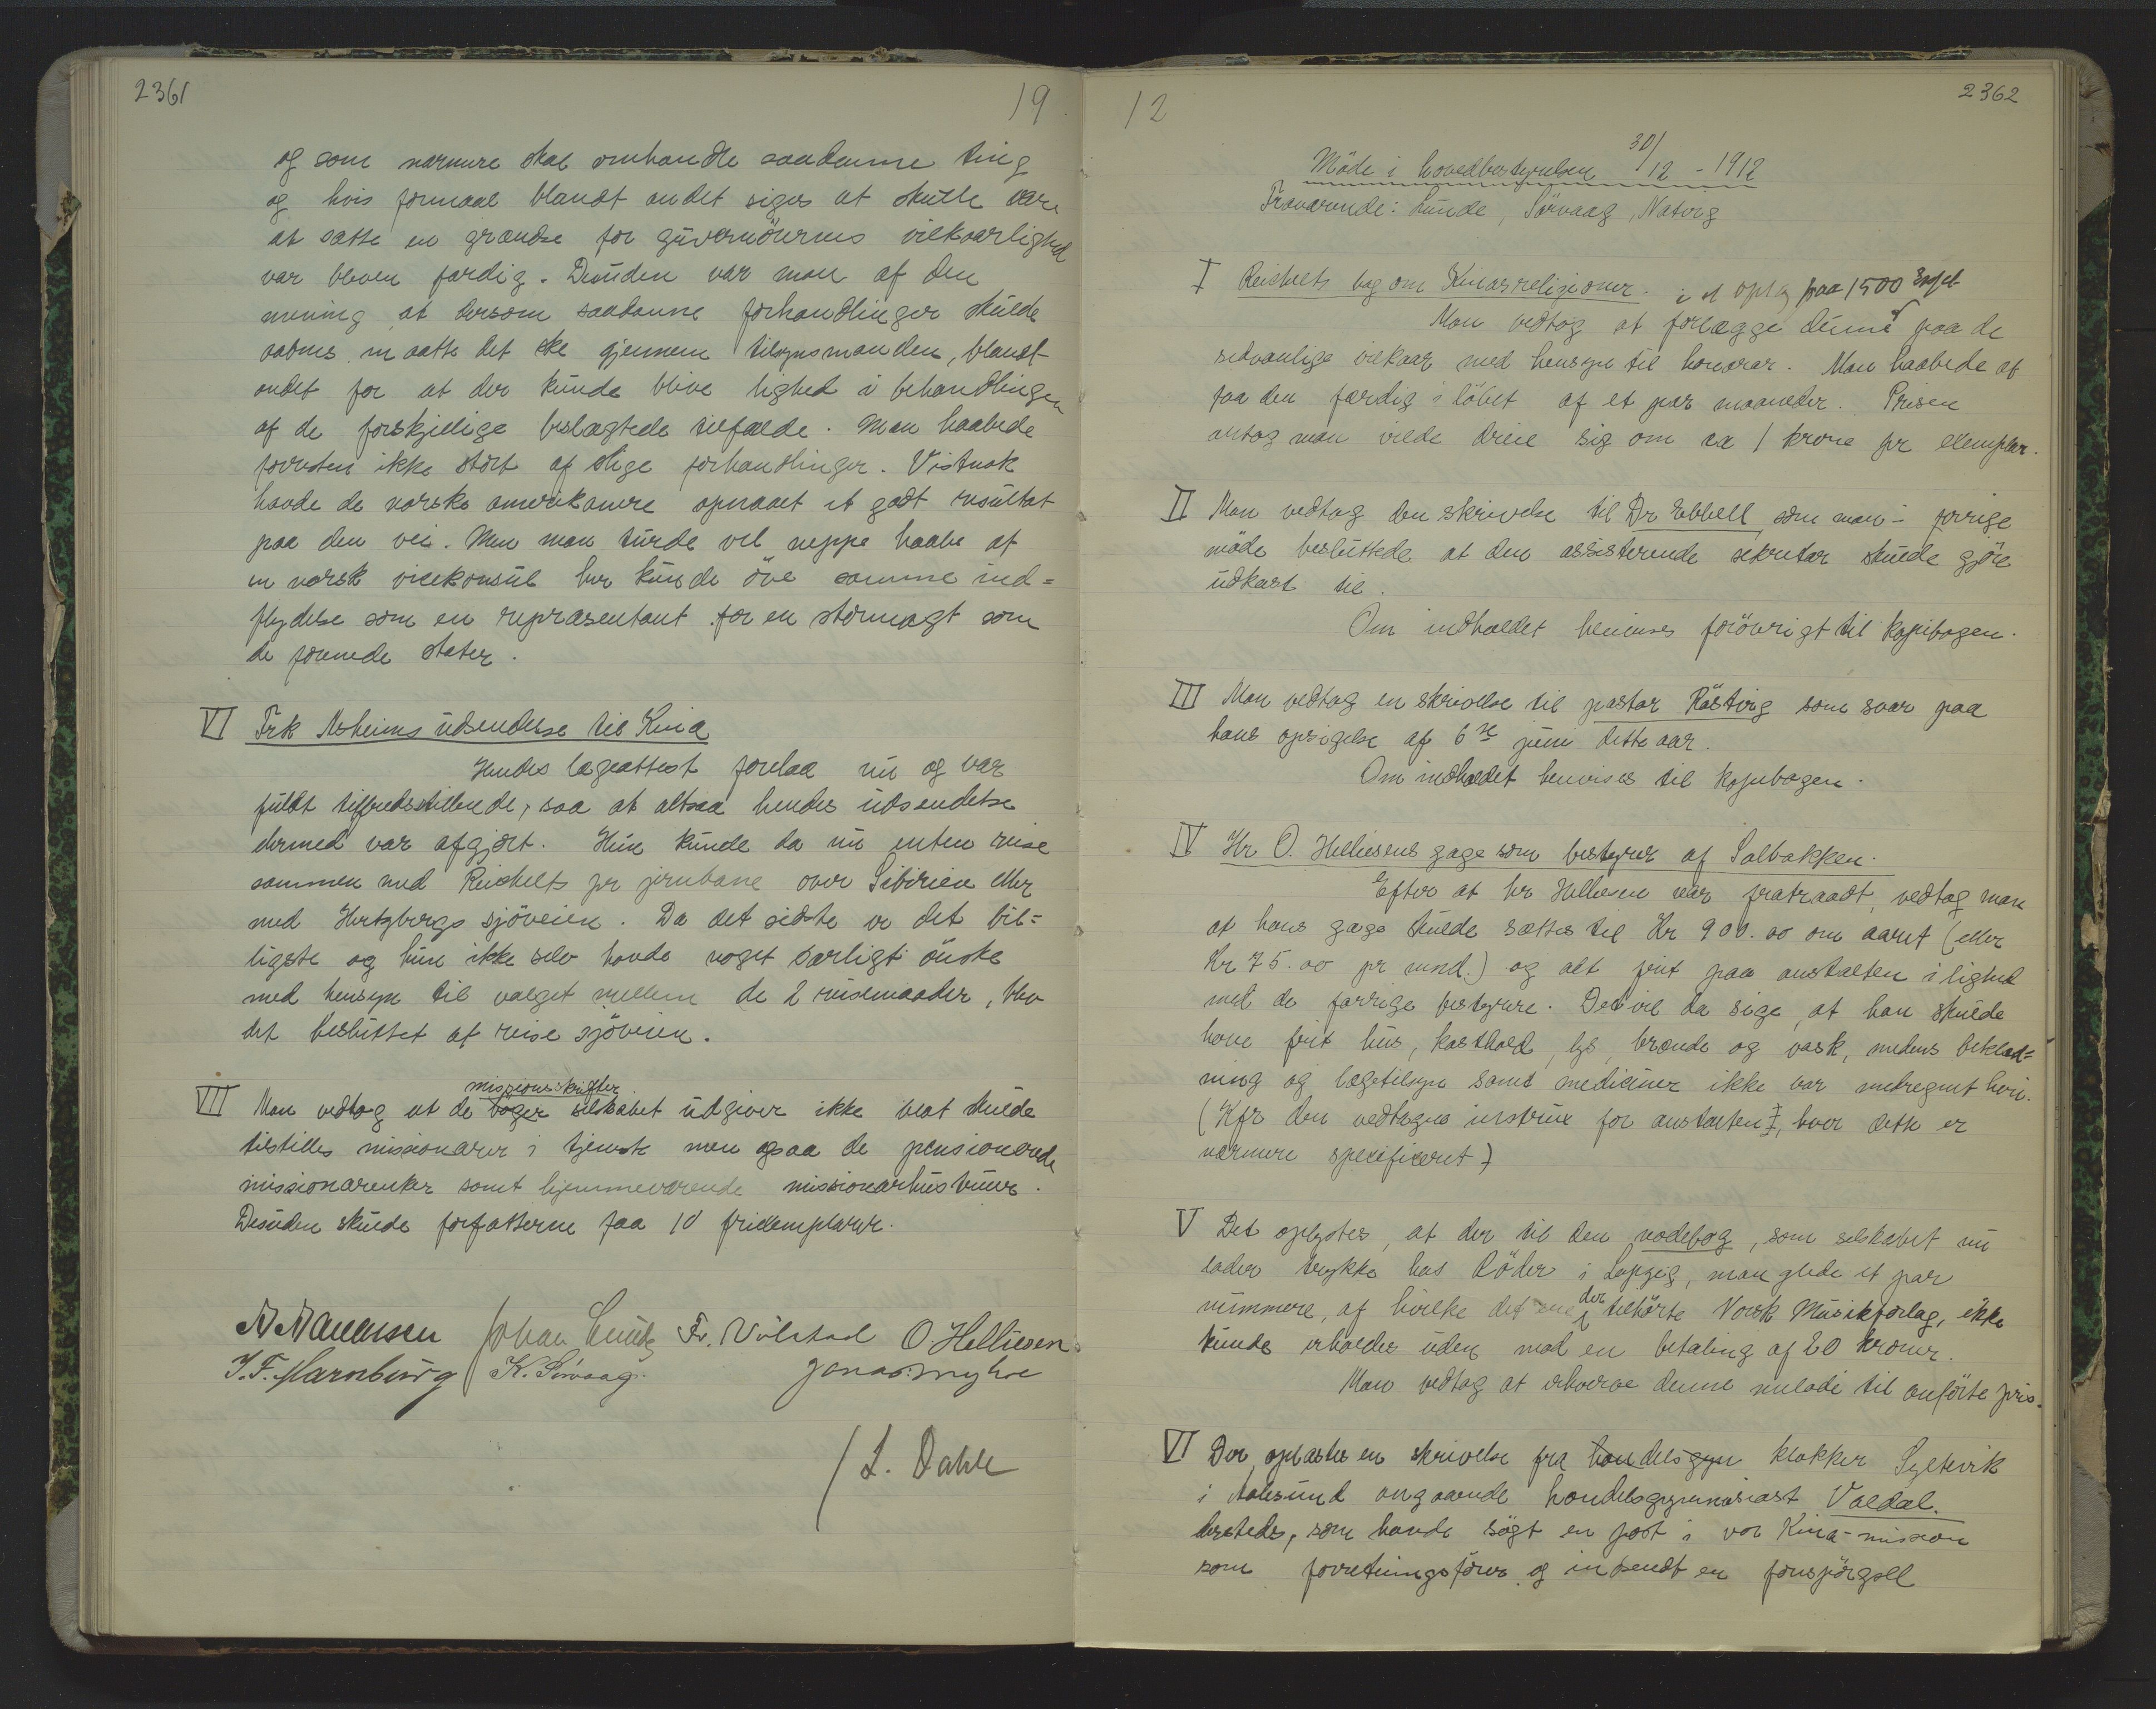 2361
19
og som nærmere skal omhandle saadanne ting
og hvis formaal blandt andet siges at skulle være
at sætte en grændse for guvernörernes vilkaarlighed
var bleven færdig. Desuden var man af den
mening at dersom saadanne forhandlinger skulde
aabnes maatte det ske gjennem tilsynsmanden, blandt
andet for at der kunde blive lighed i behandlingen
af de forskjellige beslægtede tilfælde. Man haabede
forresten ikke stort af slige forhandlinger. Vistnok
havde de norske amerikanere opnaaet et godt resultat
paa den vei. Men man turde vel neppe haabe at
en norsk vicekonsul her kunde öve samme ind=
flydelse som en repræsentant for en stormagt som
de forenede stater.
VI Frk Asheims udsendelse til Kina
Hendes lægeattest forelaa nu og var
fuldt tilfredsstillende, saa at altsaa hendes udsendelse
dermed var afgjort. Hun kunde da nu enten reise
sammen med Reichelts pr jernbane over Sibirien eller
med Hertzbergs sjöveien. Da det sidste er det bil=
ligste og hun ikke selv havde noget særligt önske
med hensyn til valget mellem de 2 reisemaader, blev
det besluttet at reise sjöveien.
missionsskrifter
VII Man vedtog at de böger selskabet udgiver ikke blot skulde
tilstilles missionærer i tjeneste men ogsaa de pensionerede
missionærenker samt hjemmeværende missionærhustruer.
Desuden skulde forfatterne faa 10 frieksemplarer.
Johan Lunde Fr. Völstad O. Helliesen
J. F. Marnburg K. Sørvaag. Jonas: Myhre
/ L. Dahle
12
2362
Möde i hovedbestyrelsen 30/12 - 1912
Fraværende: Lunde, Sörvaag, Natvig
I Reichelts bog om Kinas religioner. i et oplag paa 1500 expl.
Man vedtog at forlægge denne paa de
sedvanlige vilkaar med hensyn til honorar. Man haabede at
faa den færdig i löbet af et par maaneder. Prisen
antog man vilde dreie sig om ca 1 krone pr exemplar.
II Man vedtog den skrivelse til Dr Ebbell som man i forrige
möde besluttede at den assisterende sekretær skulde gjöre
udkast til.
Om indholdet henvises foröwrigt til kopibogen.
III Man vedtog en skrivelse til pastor Röstvig som svar paa
hans opsigelse af 6te juni dette aar.
Om indholdet henvises til kopibogen.
IV Hr O. Helliesens gage som bestyrer af Solbakken.
Efter at hr Helliesen var fratraadt, vedtog man
at hans gage skulde sættes til Kr 900.00 om aaret (eller
Kr 75.00 pr mnd.) og alt frit paa anstalten i lighed
med de forrige bestyrere. Det vil da sige, at han skulde
have frit hus, kosthold, lys, brænde og vask, medens beklæd=
ning og lægetilsyn samt mediciner ikke var medregnet heri.
(Kfr den vedtagne instrux for anstalten, hvor dette er
nærmere specificeret)
V Det oplystes, at der til den nodebog, som selskabet nu
lader trykke hos Röder i Leipzig, manglede et par
nummere, af hvilke det ene der tilhörte Norsk Musikforlag, ikke
kunde erholdes uden mod en betaling af 20 kroner.
Man vedtog at erhverve denne melodi til anförte pris.
VI Der oplæstes en skrivelse fra handelsgym klokker Syltevik
i Aalesund angaaende handelsgymnasiast Valdal.
dersteds, som havde sögt en post i vor Kina-mission
som forretningsförer og indsendt en forespörgsel